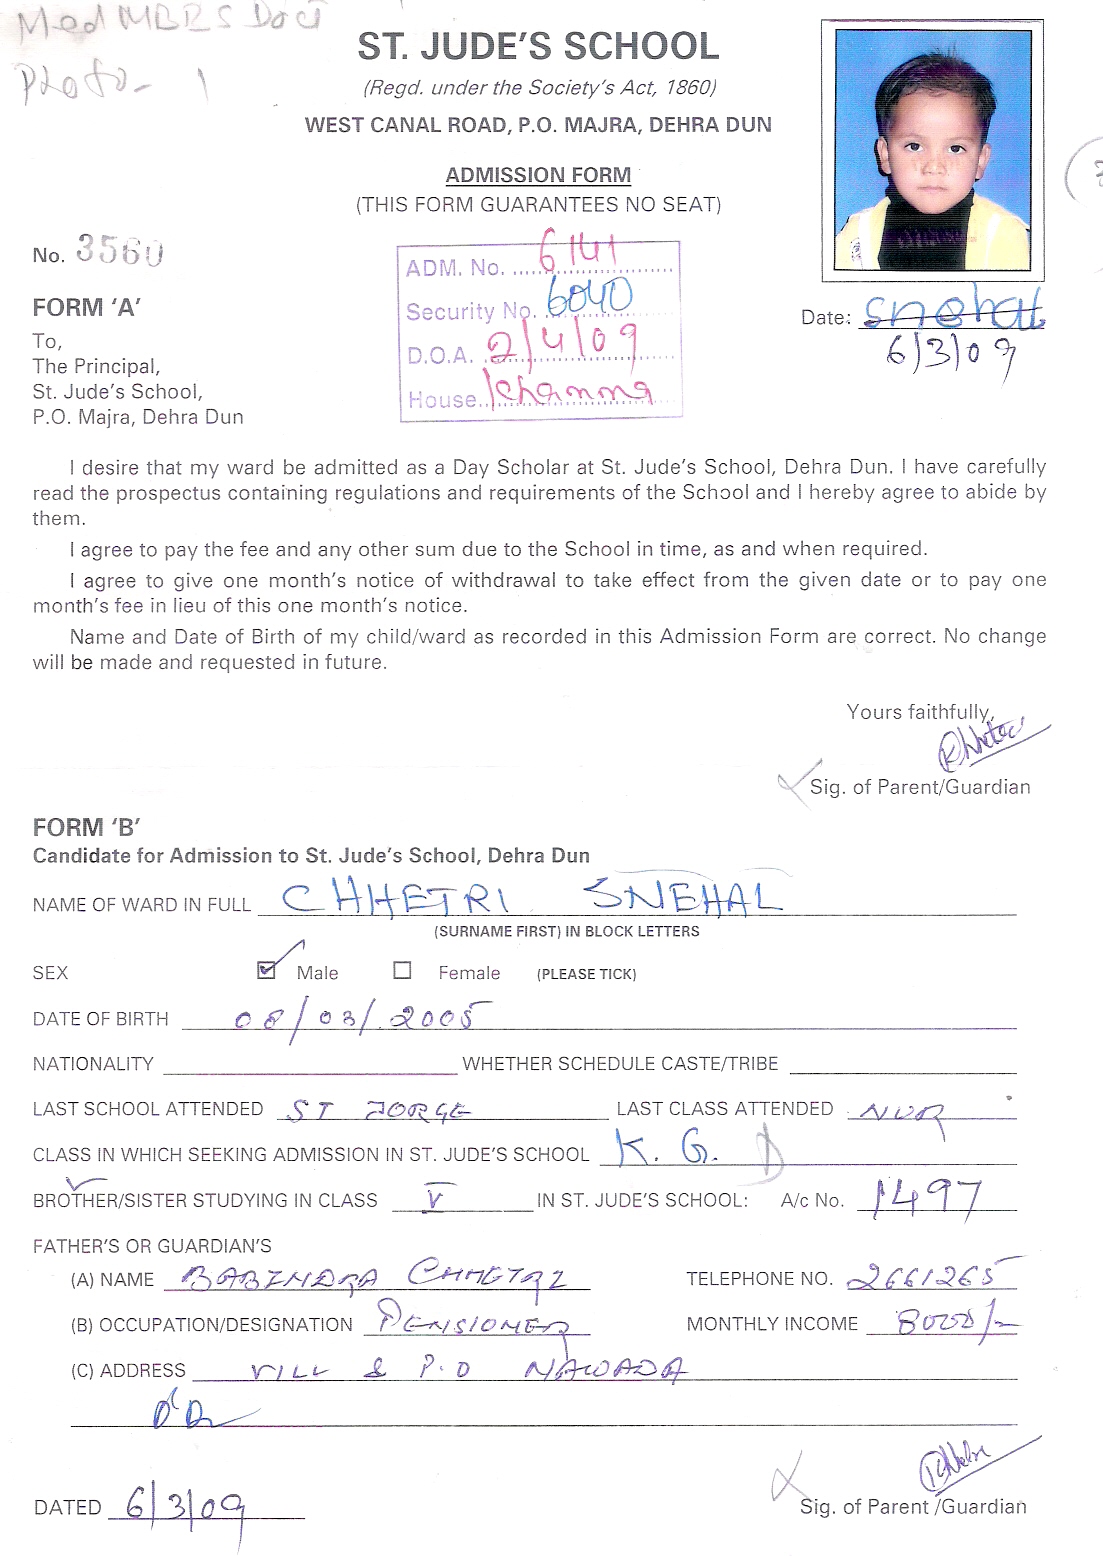 Med MBBS Doct
Photo- 1
ST. JUDE'S SCHOOL
(Regd. under the Society's Act, 1860)
WEST CANAL ROAD, P.O. MAJRA, DEHRA DUN
ADMISSION FORM
(THIS FORM GUARANTEES NO SEAT)
No. 3560
ADM. No. 6141
Security No. 6040
D.O.A. 2/4/09
House Khanna
Date: snehal
6/3/09
FORM 'A'
To,
The Principal,
St. Jude's School,
P.O. Majra, Dehra Dun
I desire that my ward be admitted as a Day Scholar at St. Jude's School, Dehra Dun. I have carefully
read the prospectus containing regulations and requirements of the School and I hereby agree to abide by
them.
I agree to pay the fee and any other sum due to the School in time, as and when required.
I agree to give one month's notice of withdrawal to take effect from the given date or to pay one
month's fee in lieu of this one month's notice.
Name and Date of Birth of my child/ward as recorded in this Admission Form are correct. No change
will be made and requested in future.
Yours faithfully,
Sig. of Parent/Guardian
FORM 'B'
Candidate for Admission to St. Jude's School, Dehra Dun
NAME OF WARD IN FULL CHHETRI SNEHAL
(SURNAME FIRST) IN BLOCK LETTERS
SEX Male Female (PLEASE TICK)
DATE OF BIRTH 08/03/2005
NATIONALITY WHETHER SCHEDULE CASTE/TRIBE
LAST SCHOOL ATTENDED ST JORGE LAST CLASS ATTENDED NUR
CLASS IN WHICH SEEKING ADMISSION IN ST. JUDE'S SCHOOL K. G. D
BROTHER/SISTER STUDYING IN CLASS V IN ST. JUDE'S SCHOOL: A/c No. 1497
FATHER'S OR GUARDIAN'S
(A) NAME RABINDRA CHHETRI TELEPHONE NO. 2661265
(B) OCCUPATION/DESIGNATION PENSIONER MONTHLY INCOME 8000/-
(C) ADDRESS VILL & P.O NAWADA
D'Dn
DATED 6/3/09
Sig. of Parent /Guardian